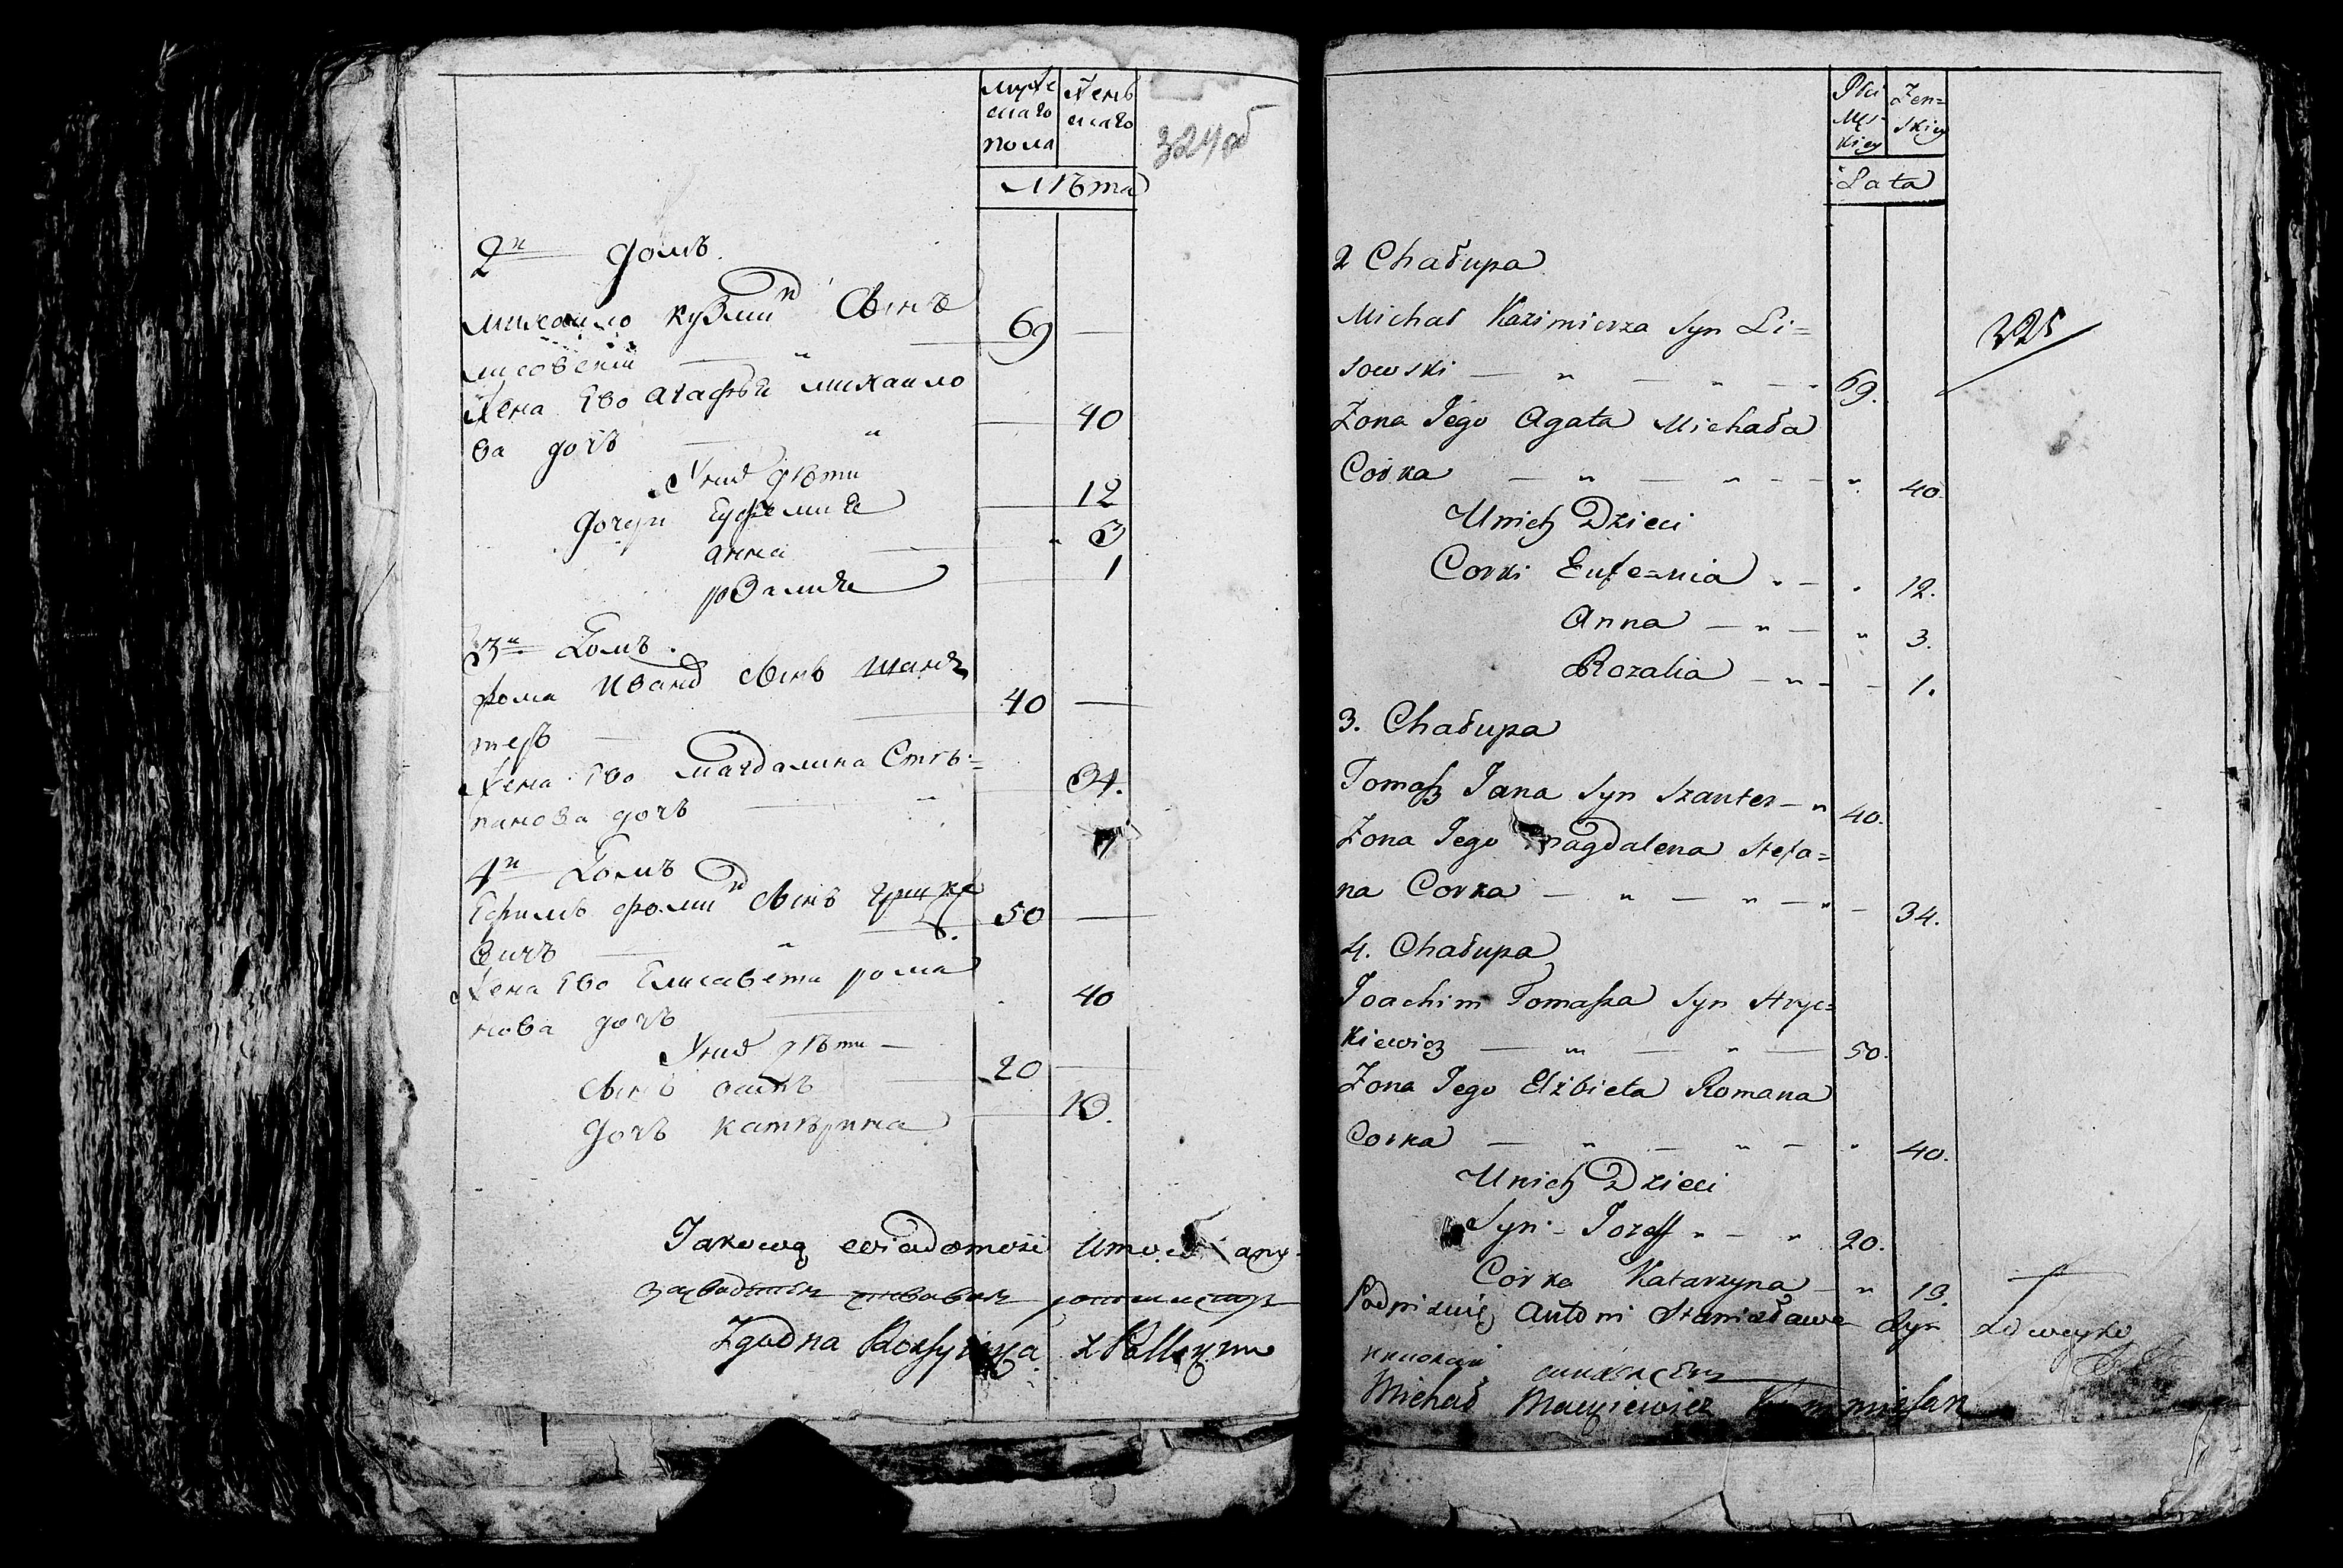 мужескаго пола
женскаго
324 об
Лѣта
2й домъ
михаило кузминъ Сынъ
лисовскій 69
жена Его агафья михаило
ва дочь 40
У нихъ дѣти
дочери Еуфемия 12
анна 3
розалия 1
3й Домъ.
фома Иванъ сынъ шан
теръ 40
жена Его магдалина Стѣ=
панова дочь 34.
4й Домъ
Ефимъ фоминъ сынъ
вичъ 50
жена Его Елисавета рома
нова дочь 40
У нихъ дѣти
сынъ осипъ 20
дочь катѣрина 13.
Jakową wiadomość
Zgodna
Płci Męskiey
Żenskiey
Lata
2 Chałupa
Michał Kazimierza Syn Li=
sowski 69.
225
Zona Jego Agata Michała
Corka 40.
Unich Dzieci
Corki Eufemia 12.
Anna 3.
Rozalia 1.
3. Chałupa
Tomasz Jana Syn Szanter 40.
Zona Jego Magdalena Stefa=
na Corka 34.
4. Chałupa
Joachim Tomasza Syn Hryc=
kiewicz 50.
Zona Jego Elżbieta Romana
Corka 40.
Unich Dzieci
Syn Jozeff 20.
Córka Katarzyna 13.
Antoni Stanisława Syn
Michał